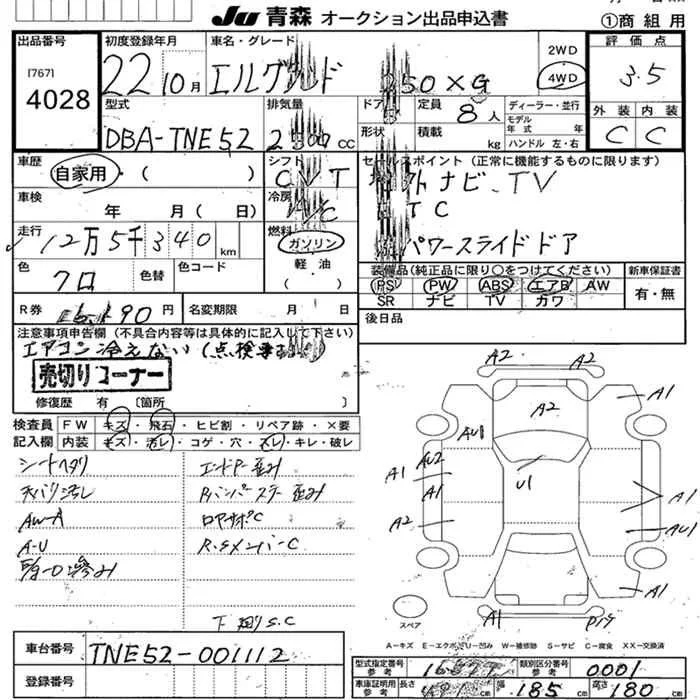 JU 青森 オークション出品申込書
①商 組 用
出品番号
[767]
4028
初度登録年月
22 10月
車名・グレード
エルグランド 250×G
2WD
4WD
評 価 点
3.5
外 装 内 装
C C
型式
DBA-TNE52
排気量
2500 CC
ドア
形状
定員 8 人
積載 kg
ディーラー・並行
モデル
年 式 年
ハンドル 左・右
車歴
自家用・( )
シフト
CVT
セールスポイント(正常に機能するものに限ります)
ナビ、TV
TC
パワースライドドア
車検
年 月( 日)
冷房
A/C
走行
12万5千340 km
燃料
ガソリン
軽 油
( )
色
クロ
色替
色コード
装備品(純正品に限り〇をつけてください)
PS PW ABS エアB AW
SR ナビ TV カワ
新車保証書
有・無
R券
円
名変期限 月 日
後日品
注意事項申告欄(不具合内容等は具体的に記入して下さい)
エアコン冷えない(点検
売切りコーナー
修復歴 有 〔箇所 〕
検査員
記入欄
FW キズ・飛石・ヒビ割・リペア跡・×要
内装 キズ・汚レ・コゲ・穴・スレ・キレ・破レ
シートヘタリ
天バリ汚レ
AW-A
A-U
エンドP歪み
Rバンパーステー歪み
ロアサポC
R.SメンバーC
下廻りS.C
A2
A2
A2
A1
AU1
AU2
A1
A1
U1
A2
A1
AU1
A1
A1
スペア
A－キズ E－エクボ U－凹み W－補修跡 S－サビ C－腐食 XX－交換済
車台番号
TNE52-001112
登録番号
型式指定番号
参考
類別区分番号
参考
0001
車庫証明用
参考
長さ cm
幅 185 cm
高さ 180 cm